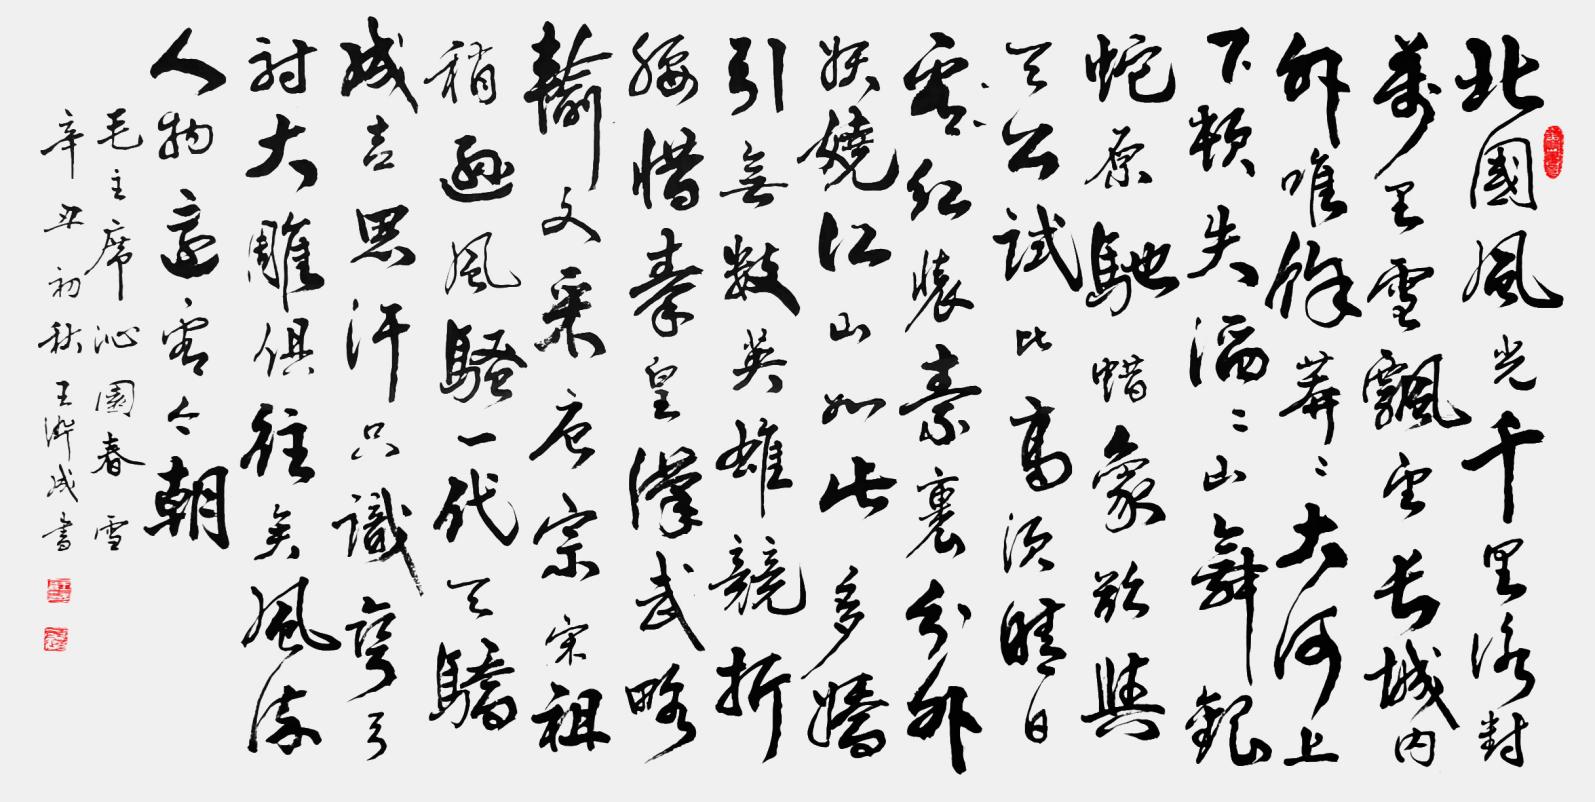 北國風光千里冰封
萬里雪飄望長城內
外唯餘莽〻大河上
下頓失滔〻山舞銀
蛇原馳蜡象欲與
天公試比高須晴日
看紅裝素裹分外
妖嬈江山如此多嬌
引無數英雄競折
腰惜秦皇漢武略
輸文采唐宗宋祖
稍遜風騷一代天驕
成吉思汗只識彎弓
射大雕俱往矣風流
人物還看今朝
毛主席沁園春雪
辛丑初秋王成書